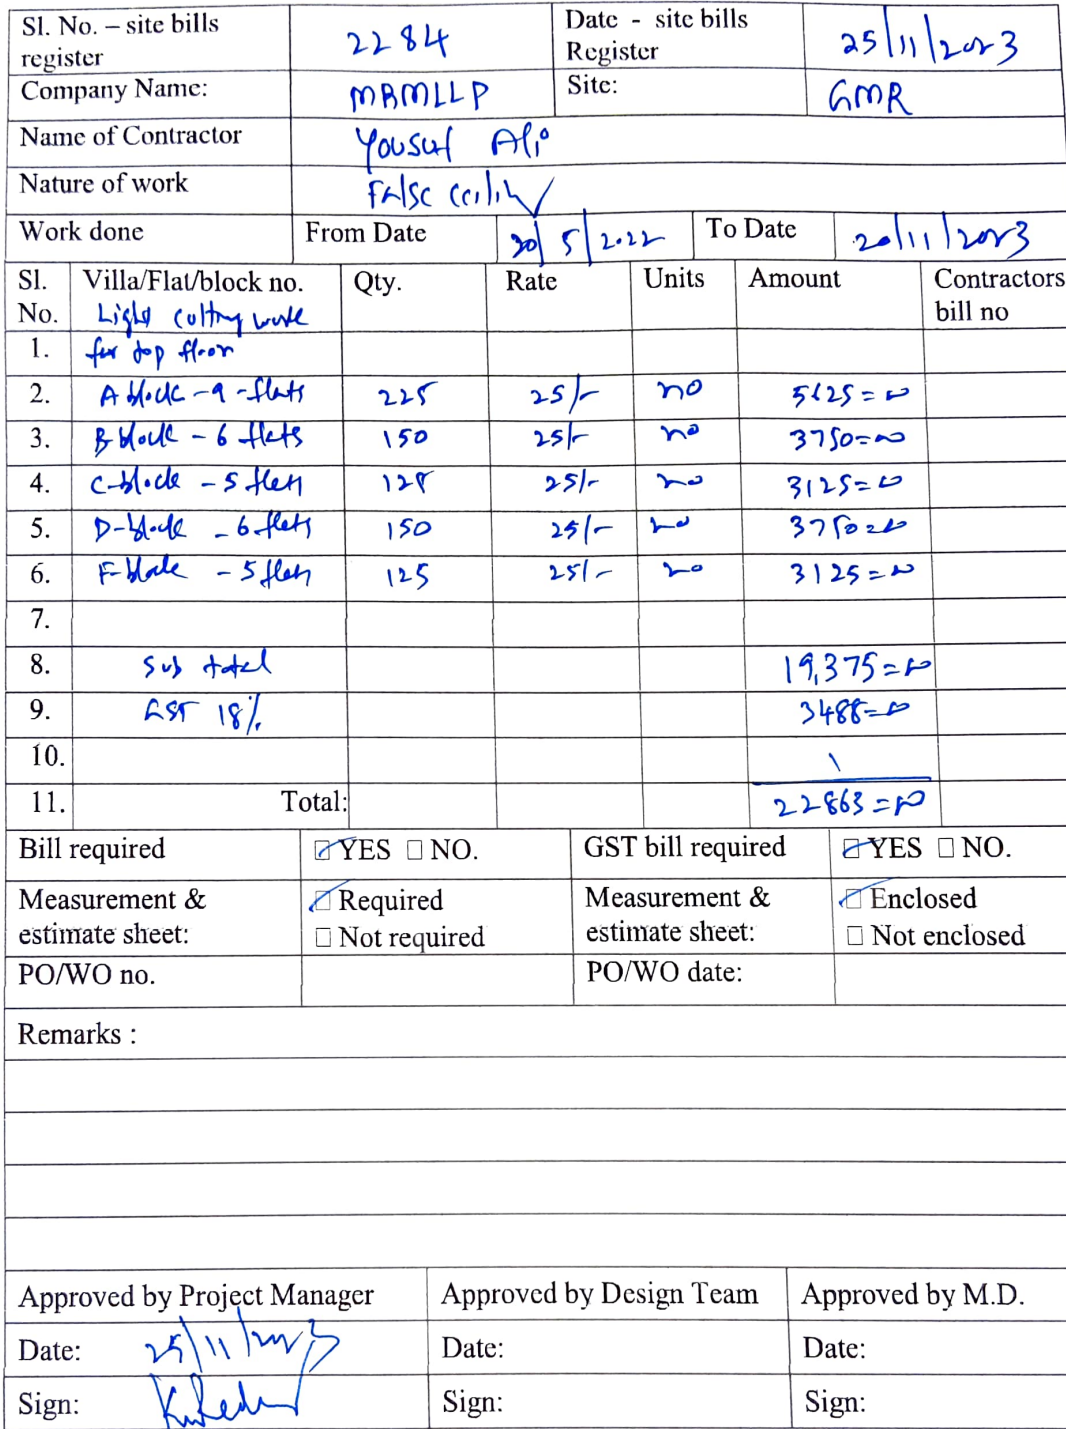 Sl. No. – site bills register 2284 Date - site bills Register 25/11/2023
Company Name: MRMLLP Site: GMR
Name of Contractor Yousuf Ali
Nature of work False ceiling
Work done From Date 30/5/2022 To Date 20/11/2023
Sl. No. Villa/Flat/block no. Qty. Rate Units Amount Contractors bill no
Light cutting work
1. for top floor
2. A block - 9 - flats 225 25/- no 5625=00
3. B-block - 6 flats 150 25/- no 3750=00
4. C-block - 5 flats 125 25/- no 3125=00
5. D-block - 6 flats 150 25/- no 3750=00
6. F-block - 5 flats 125 25/- no 3125=00
7.
8. Sub total 19,375=00
9. GST 18% 3488=00
10.
11. Total: 22863=00
Bill required ☑ YES ☐ NO. GST bill required ☑ YES ☐ NO.
Measurement & estimate sheet: ☑ Required ☐ Not required Measurement & estimate sheet: ☑ Enclosed ☐ Not enclosed
PO/WO no. PO/WO date:
Remarks :
Approved by Project Manager Approved by Design Team Approved by M.D.
Date: 25/11/2023 Date: Date:
Sign: Sign: Sign: